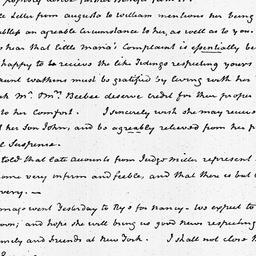 letter from augusta to William mentions her being
an agreable circumstance to her, as well as to you.
hear that Little Maria's Complaint is essentially be
happy to receive the like Tidings respecting yours
aunt Watkins must be gratified by living with her
Mr. & Mrs. Beebee deserve credit for their proper
to her Comfort. I sincerely wish she may receive
her Son John, and be agreably relieved from her p
Suspense.
told that late accounts from Judge Miller represent
very infirm and feeble, and that there is but l
very. —
went Yesterday to Rye for Nancy. We expect to
soon; and hope she will bring us good news respecting
family and Friends at New York. I shall not close th